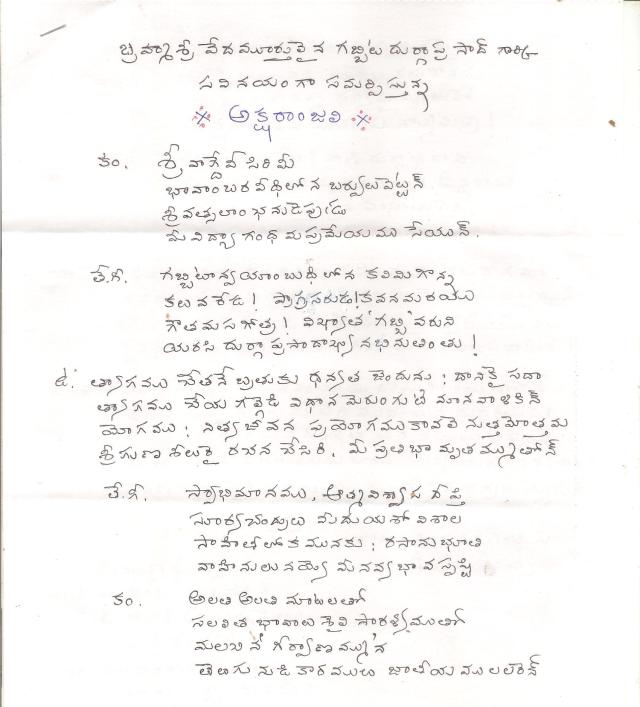 బ్రహ్మశ్రీ వేదమూర్తులైన గబ్బిట దుర్గాప్రసాద్ గార్కి
సవినయంగా సమర్పిస్తున్న
※ అక్షరాంజలి ※
కం. శ్రీ వాగ్దేవి సిరి మీ
భావాంబర వీథిలోన బర్వులు పెట్టన్
శ్రీవత్సలాంఛనుడెపుడు
మీ విద్యా గంధ మప్రమేయము సేయున్.
తే.గీ. గబ్బిటాన్వయాంబుధిలోన కలిమిగొన్న
కలువఱేడ! ప్రాగ్రసరుడ! కవనమరయు
గౌతమస గోత్ర! విఖ్యాత 'గబ్బి' వరుని
యరసి దుర్గాప్రసాదాఖ్య నభినుతింతు!
ఉ. త్యాగము చేతనే బ్రతుకు ధన్యత జెందును; దానికై సదా
త్యాగము చేయ గల్గెడి విధాన మెరుంగుటె మానవాళికిన్
యోగము; నిత్యజీవన ప్రయోగము కావలె నుత్తమోత్తమ
శ్రీ గుణ శీలురై రచన చేసిరి, మీ ప్రతిభామృతమ్ముతోన్
తే.గీ. స్వాభిమానము, ఆత్మవిశ్వాస దీప్తి
సూర్యచంద్రులు మీదు యశో విశాల
సాహితీలోకమునకు; రసానుభూతి
వాహినులునయ్యె మీ నవ్యభావ సృష్టి
కం. అలతి అలతి మాటలతో
సలలిత భావాలు శైలి సారళ్యముతో
మలచిన గీర్వాణమ్మున
తెలుగు నుడికారములు జాతీయములలరెన్